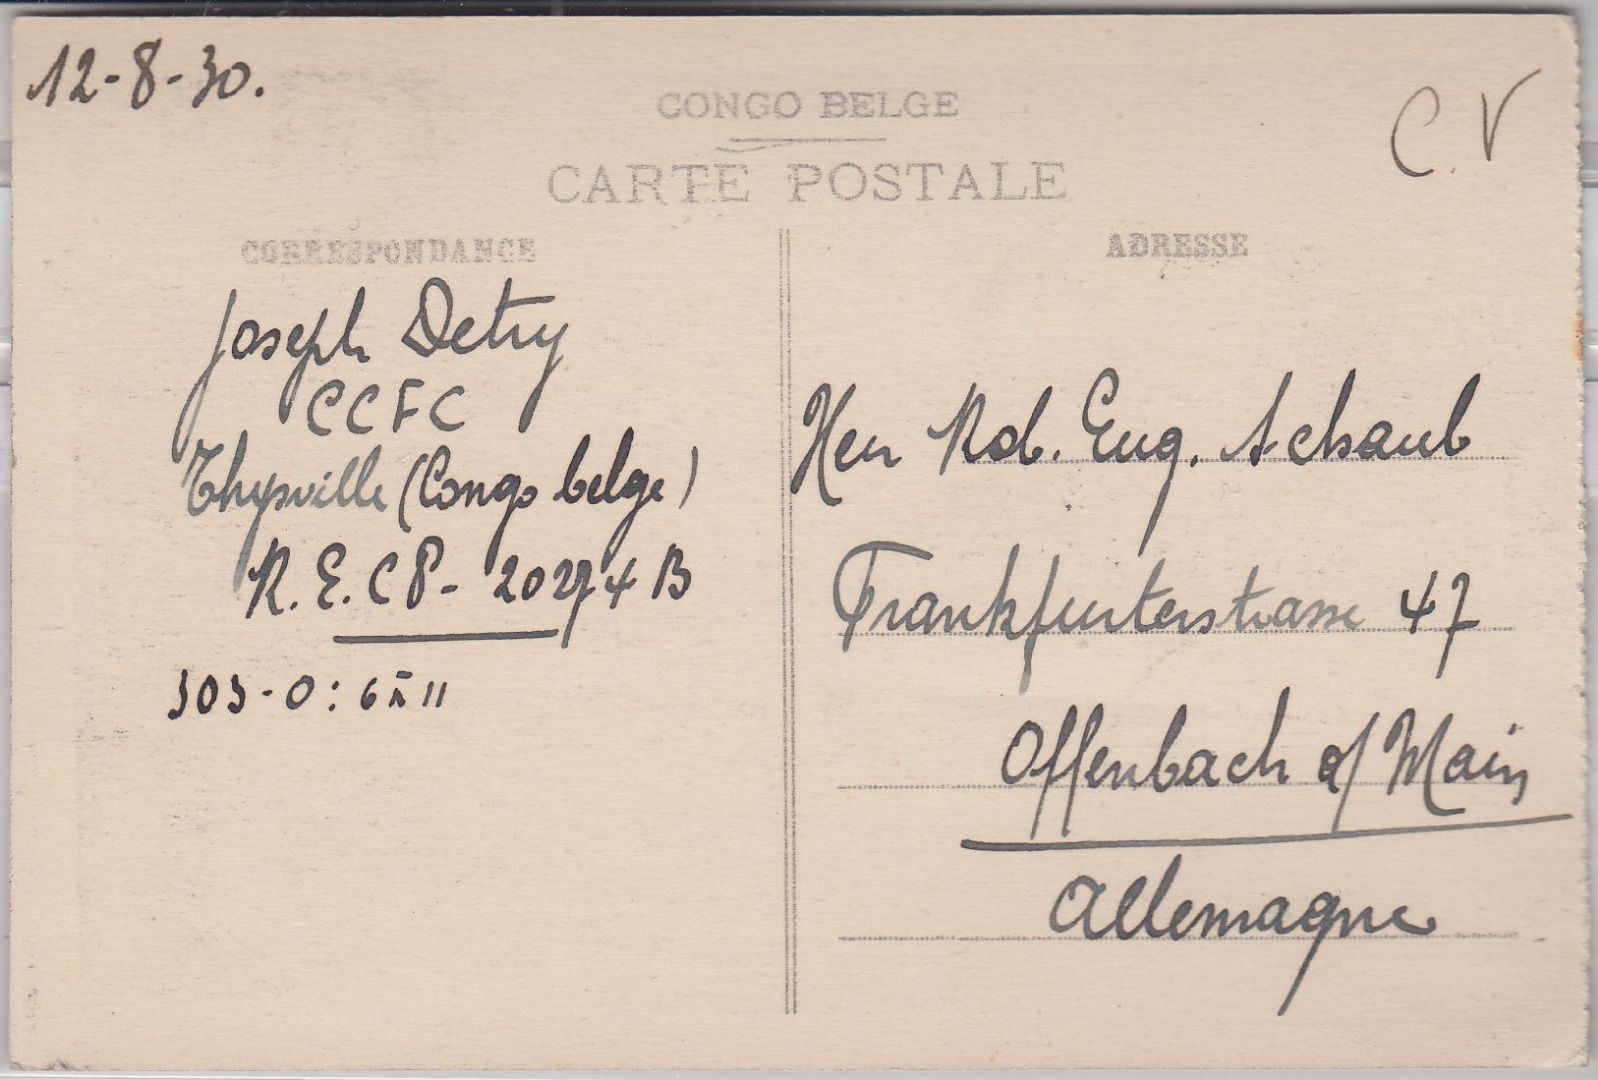 12-8-30.
CONGO BELGE
CARTE POSTALE
C.V
CORRESPONDANCE
Joseph Detry
CCFC
Thysville (Congo belge)
R.E.CP- 20274 B
303-0:
ADRESSE
Herr Rob. Eug. Schaub
Frankfurterstrasse 47
Offenbach a/Main
Allemagne